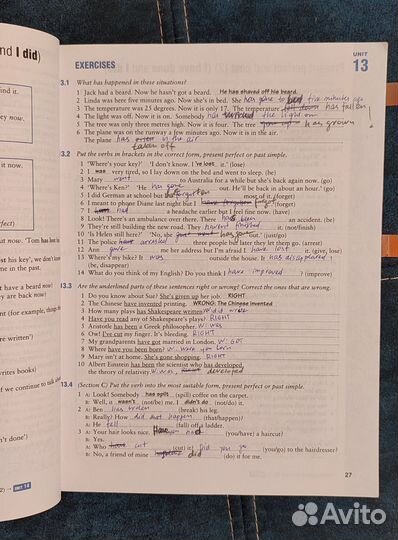 nd I did)
ind it.
ey now.
it now.
rfect)
out 'Tom has lost his
lost his key', we don't
ave a beard now)
ey are back now)
nt (for example, things
re written')
rites books)
if we continue to talk
dn't done')
2) → UNIT 14
EXERCISES
UNIT
13
3.1 What has happened in these situations?
1 Jack had a beard. Now he hasn't got a beard. He has shaved off his beard.
2 Linda was here five minutes ago. Now she's in bed. She has gone to bed five minutes ago
3 The temperature was 25 degrees. Now it is only 17. The temperature has fallen
4 The light was off. Now it is on. Somebody has turned the light on
5 The tree was only three metres high. Now it is four. The tree has grown
6 The plane was on the runway a few minutes ago. Now it is in the air.
The plane has in the air
taken off
3.2 Put the verbs in brackets in the correct form, present perfect or past simple.
1 'Where's your key?' 'I don't know. I 've lost it.' (lose)
2 I was very tired, so I lay down on the bed and went to sleep. (be)
3 Mary went to Australia for a while but she's back again now. (go)
4 'Where's Ken?' 'He has gone out. He'll be back in about an hour.' (go)
5 I did German at school but I forgotten most of it. (forget)
6 I meant to phone Diane last night but I forgot (forget)
7 I had a headache earlier but I feel fine now. (have)
8 Look! There's an ambulance over there. There has been an accident. (be)
9 They're still building the new road. They haven't finished it. (not/finish)
10 'Is Helen still here?' 'No, she has gone out.' (just/go)
11 The police have arrested three people but later they let them go. (arrest)
12 Ann gave me her address but I'm afraid I have lost it. (give, lose)
13 Where's my bike? It was outside the house. It has disappeared!
(be, disappear)
14 What do you think of my English? Do you think I have improved? (improve)
3.3 Are the underlined parts of these sentences right or wrong? Correct the ones that are wrong.
1 Do you know about Sue? She's given up her job. RIGHT
2 The Chinese have invented printing. WRONG: The Chinese invented
3 How many plays has Shakespeare written? did write
4 Have you read any of Shakespeare's plays? RIGHT
5 Aristotle has been a Greek philosopher. W: was
6 Ow! I've cut my finger. It's bleeding. RIGHT
7 My grandparents have got married in London. W. GOT
8 Where have you been born? W. were you born
9 Mary isn't at home. She's gone shopping. RIGHT
10 Albert Einstein has been the scientist who has developed
the theory of relativity. W. was, developed
13.4 (Section C) Put the verb into the most suitable form, present perfect or past simple.
1 A: Look! Somebody has spilt (spill) coffee on the carpet.
B: Well, it wasn't (not/be) me. I didn't do (not/do) it.
2 A: Ben has broken (break) his leg.
B: Really? How did that happen (that/happen)?
A: He fell (fall) off a ladder.
3 A: Your hair looks nice. Have you had (you/have) a haircut?
B: Yes.
A: Who cut (cut) it? Did you go (you/go) to the hairdresser?
B: No, a friend of mine did (do) it for me.
27
Avito